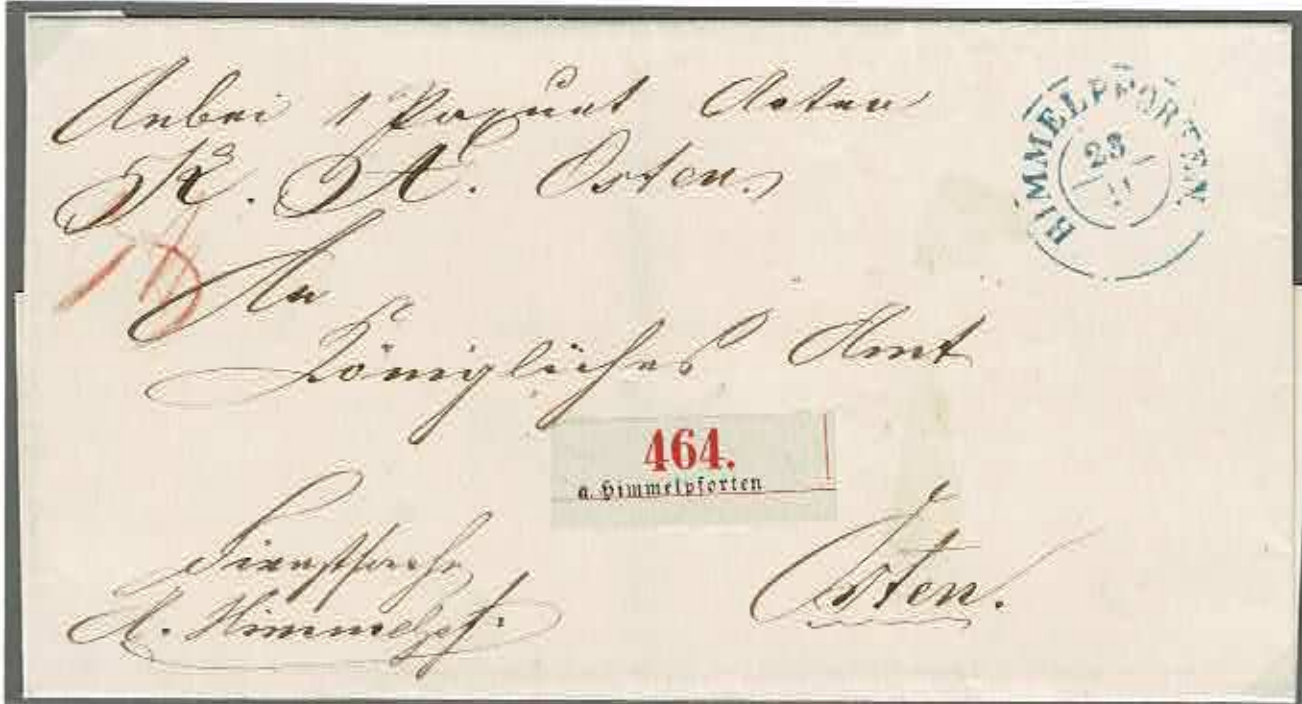 Anbei 1 Paquet Acten
K. A. Osten.
HIMMELPFORTEN.
23
11
An
Königliches Amt
464.
a. Himmelpforten
Dienstsache
A. Himmelpf.
Osten.